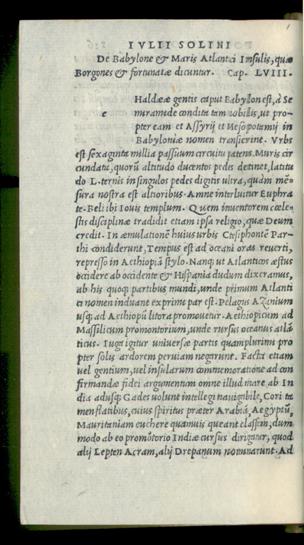 IVLII SOLINI
De Babylone & Maris Atlantci Insulis, quæ
Gorgones & fortunatæ dicuntur. Cap. LVIII.
Haldææ gentis caput Babylon est, à Se
c
miramide condita tam nobilis, ut pro-
pter eam et Assyrij et Mesopotamij in
Babyloniæ nomen transierint. Vrbs
est sexaginta millia passuum circuitu patens. Muris cir
cundata, quorū altitudo ducentos pedes detinet, latitu
do L. ternis in singulos pedes digitis ultra, quàm mē-
sura nostra est altioribus. Amne interluitur Euphra
te. Beli ibi Iouis templum. Quem inuentorem cœle-
stis disciplinæ tradidit etiam ipsa religio, quæ Deum
credit. In æmulationē huius urbis Ctesiphontē Par-
thi condiderunt. Tempus est ad oceani oras reuerti,
represso in Aethiopiā stylo. Nanq; ut Atlanticos æstus
occidere ab occidente & Hispania dudum dixeramus,
ab his quoq; partibus mundi, unde primum Atlanti
ci nomen induant exprimi par est. Pelagus Azanium
usq; ad Aethiopū litora promouetur. Aethiopicum ad
Massilicum promontorium, unde rursus oceanus atlā-
ticus. Iuga igitur uniuersæ partis quamplurimi pro
pter solis ardorem peruiam negarunt. Factā etiam
uel gentium, uel insularum commemoratione ad con
firmandæ fidei argumentum omne illud mare ab In
dia adusq; Gades uolunt intellegi nauigabile, Cori ta
men flatibus, cuius spiritus præter Arabiā, Aegyptū,
Mauritaniam euehere quamuis queant classem, dum
modo ab eo promōtorio Indiæ cursus dirigatur, quod
alij Lepten Acram, alij Drepanum nominarunt. Ad